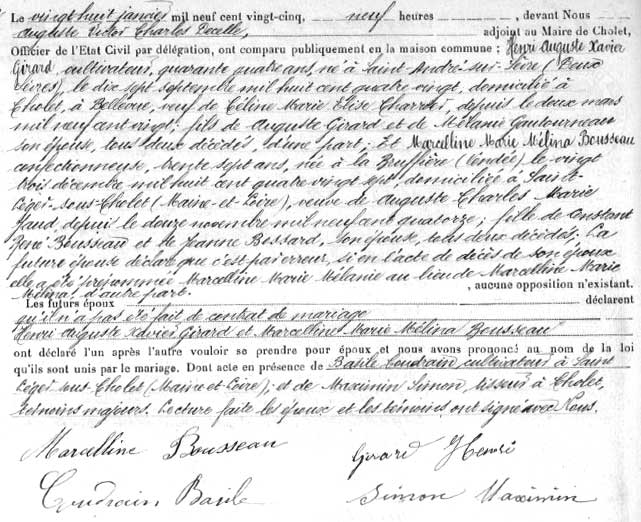 Le vingt huit janvier mil neuf cent vingt-cinq, neuf heures, devant Nous
Auguste Victor Charles Pecelle, adjoint au Maire de Cholet,
Officier de l'Etat Civil par délégation, ont comparu publiquement en la maison commune : Henri Auguste Xavier
Girard, cultivateur, quarante quatre ans, né à Saint-André-sur-Sèvre (Deux
Sèvres), le dix sept septembre mil huit cent quatre vingt, domicilié à
Cholet, à Bellevue, veuf de Céline Marie Elise Charrier, depuis le deux mars
mil neuf cent vingt; fils de Auguste Girard et de Mélanie Gautourneau
son épouse, tous deux décédés, d'une part; Et Marcelline Marie Mélina Bousseau
confectionneuse, trente sept ans, née à la Bruffière (Vendée) le vingt
trois décembre mil huit cent quatre vingt sept, domiciliée à Saint-
Léger-sous-Cholet (Maine-et-Loire), veuve de Auguste Charles Marie
Gaud, depuis le douze novembre mil neuf cent quatorze; fille de Constant
René Bousseau et de Jeanne Bossard, son épouse, tous deux décédés; La
future épouse déclare que c'est par erreur, si en l'acte de décès de son époux
elle a été prénommée Marcelline Marie Mélanie au lieu de Marcelline Marie
Mélina; d'autre part. , aucune opposition n'existant.
Les futurs époux déclarent
qu'il n'a pas été fait de contrat de mariage
Henri Auguste Xavier Girard et Marcelline Marie Mélina Bousseau
ont déclaré l'un après l'autre vouloir se prendre pour époux et nous avons prononcé au nom de la loi
qu'ils sont unis par le mariage. Dont acte en présence de Basile Coudrain, cultivateur à Saint
Léger-sous-Cholet (Maine et Loire); et de Maximin Simon, tisseur à Cholet,
témoins majeurs. Lecture faite les époux et les témoins ont signé avec Nous.
Marcelline Bousseau Girard Henri
Coudrain Basile Simon Maximin